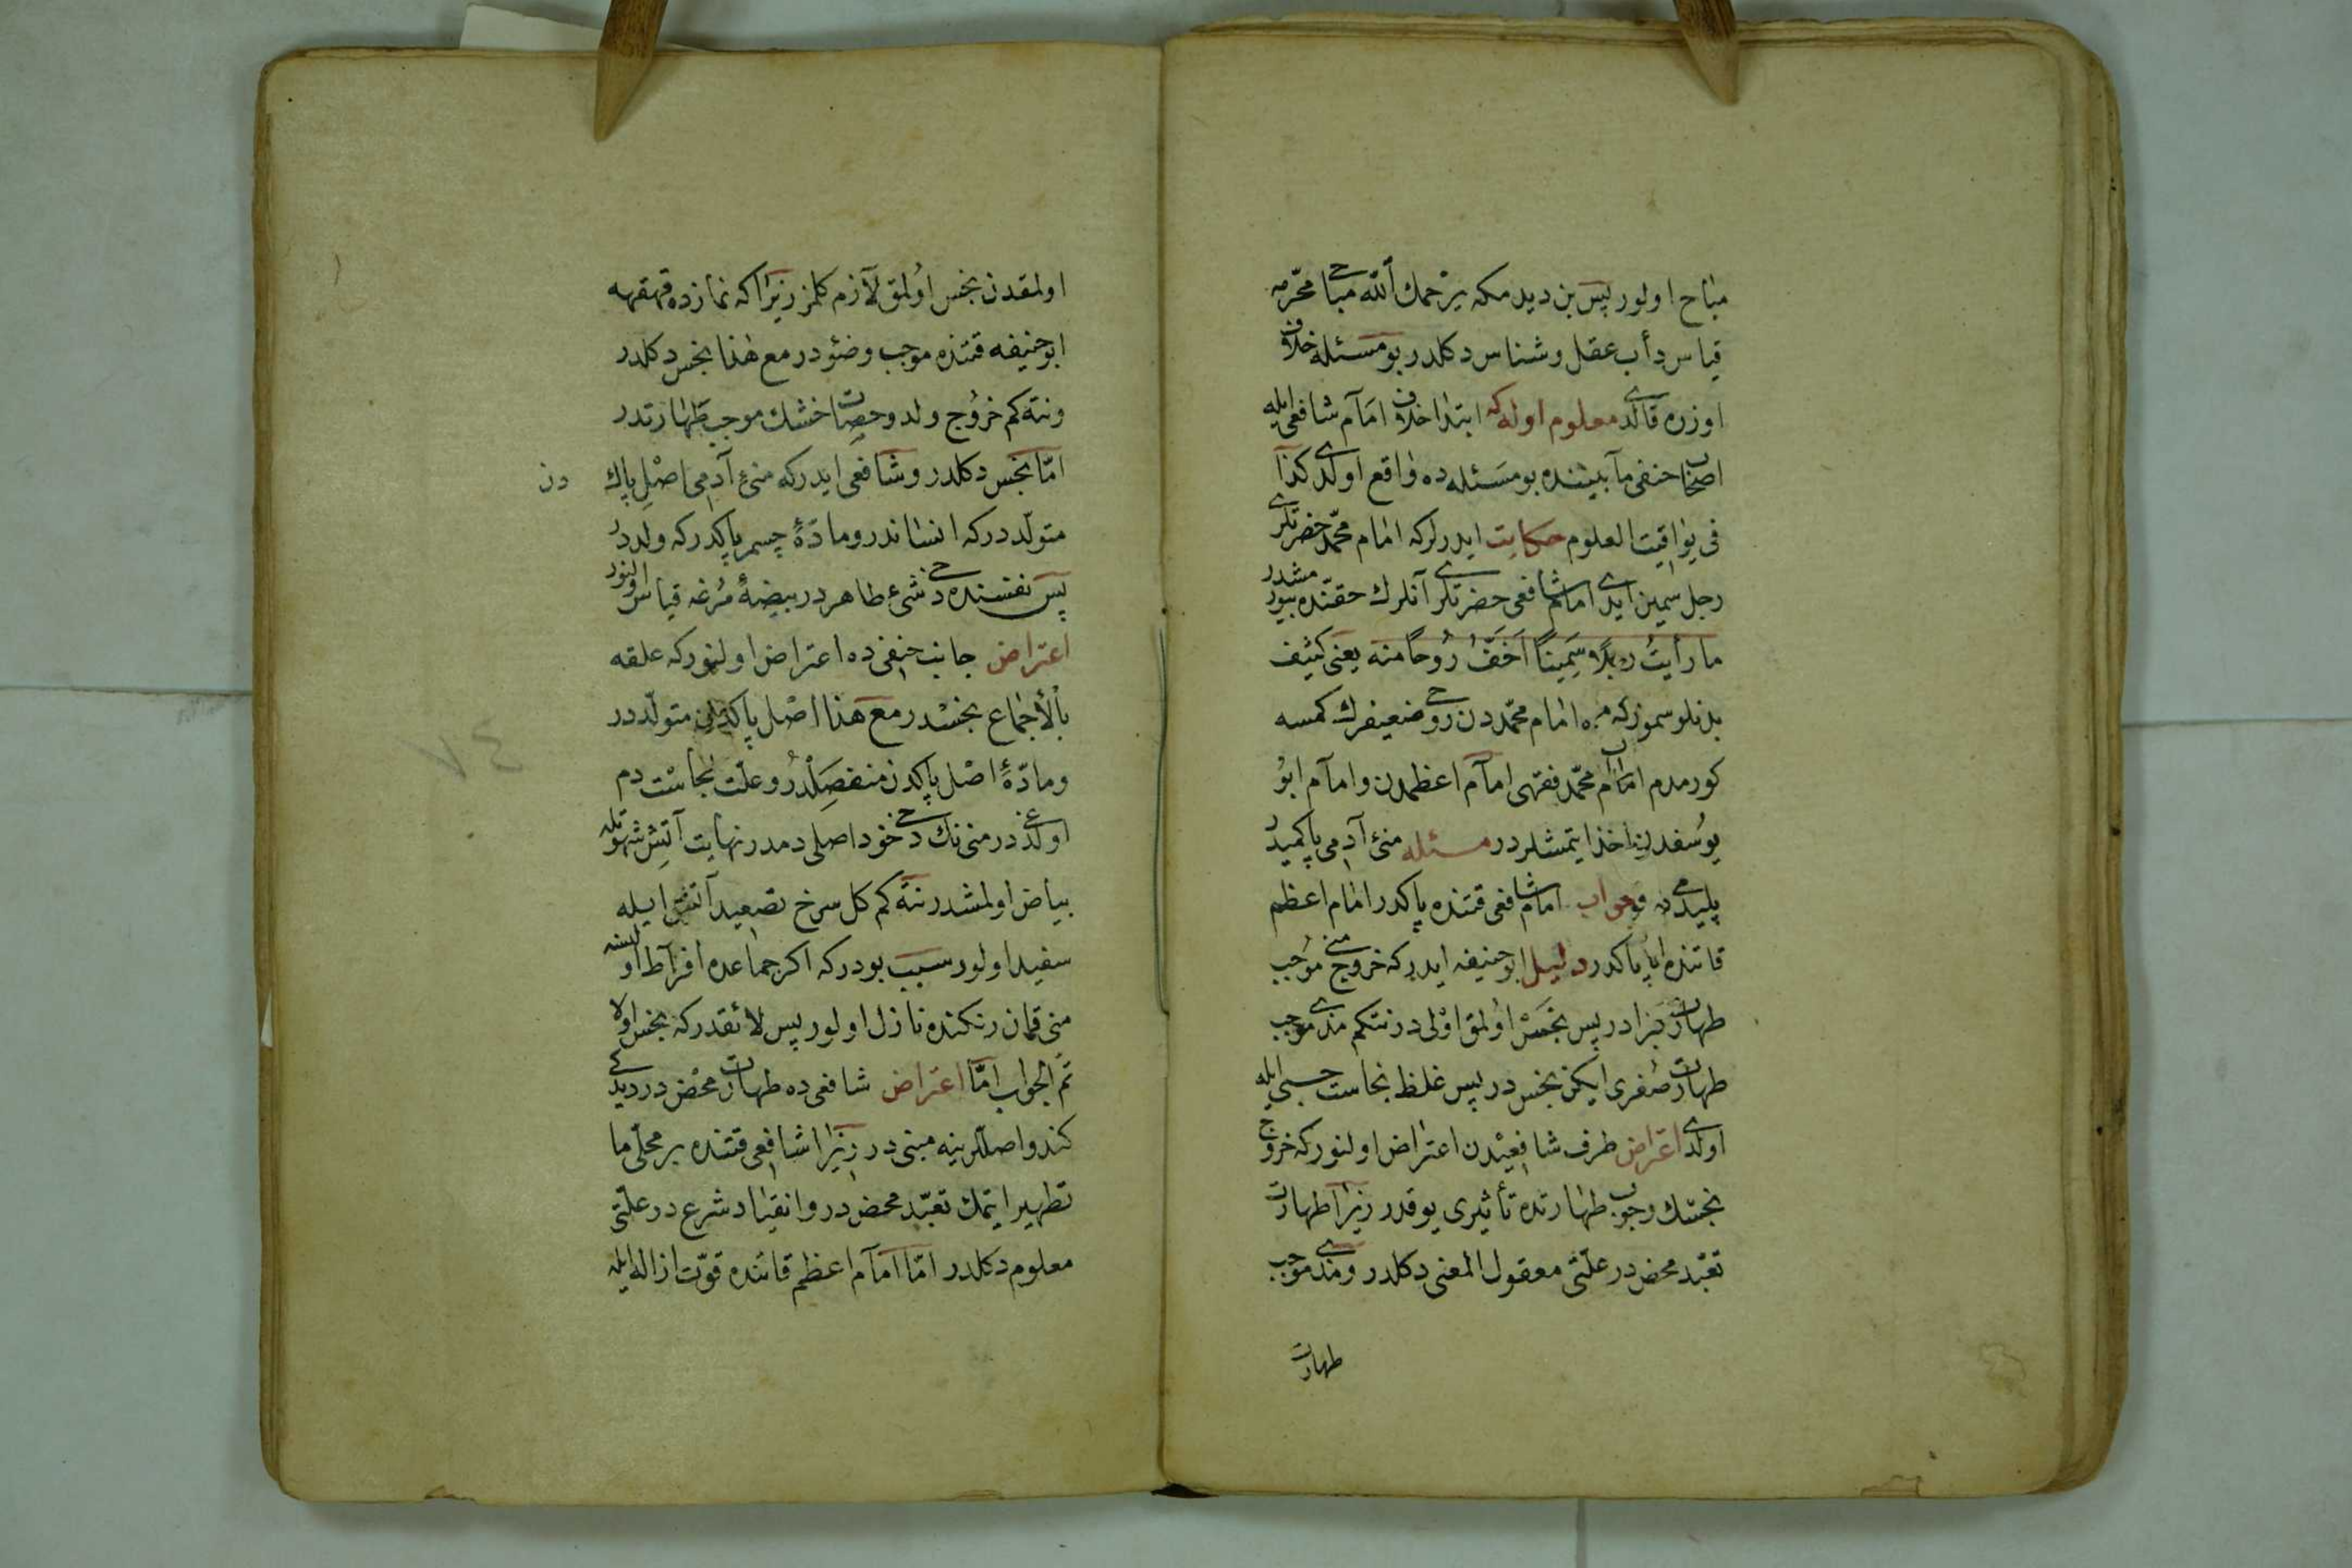 مباح اولور پس بن ديدمكه يرحمك الله مباحی محرّمه
قياس دأب عقل وشناس دكلدر بو مسئله خلاف
اوزره قالدی معلوم اوله كه ابتدا خلاف امام شافعی ايله
اصحاب حنفی مابيننده بو مسئله ده واقع اولدی كذا
فی يواقيت العلوم حكايت ايدرلر كه امام محمّد حضرتلری
رجل سمين ايدی امام شافعی حضرتلری آنلرك حقّنده بيورمشدر
ما رأيتُ رجلًا سَمِينًا اَخَفَّ رُوحًا منه يعنی كثيف
بدنلو سموز كمسه امام محمّددن روحی ضعيفرك كمسه
كورمدم امام محمّد فقهی امام اعظمدن وامام ابو
يوسفدن اخذ ايتمشلردر مسئله منیٔ آدمی پاكمیدر
پليدمیدر جواب امام شافعی قتنده پاكدر امام اعظم
قاتنده ناپاكدر دليل ابو حنيفه ايدر كه خروج منی موجب
طهارت كبرادر پس نجَسْ اولمق اوْلی در نتكم مذی موجب
طهارت صُغری ايكن نجس در پس غلظ نجاست حسبی ايله
اولدی اعتراض طرف شافعیْدن اعتراض اولنور كه خروج
نجسك وجوب طهارتده تأثيری يوقدر زيرا طهارت
تعبّد محض در علّتی معقول المعنی دكلدر ومذی موجب
طهارت
اولمقدن نجس اولمق لازم كلمز زيرا كه نمازده قهقهه
ابو حنيفه قتنده موجب وضؤدر مع هذا نجس دكلدر
ونته كم خروج ولد وحصات خشك موجب طهارتدر
امّا نجس دكلدر وشافعی ايدر كه منیٔ آدمی اصْلِ پاك دن
متولّددر كه انساندر ومادّهٔ جسم پاكدر كه ولددر
پس نفسنده دخی شیء طاهردر بيضهٔ مُرغه قياس اولنور
اعتراض جانب حنفی ده اعتراض اولنور كه علقه
بالأجماع نجسْدر مع هذا اصْل پاكدن متولّددر
ومادّهٔ اصْل پاكدن منفصلْدر وعلّت نجاست دم
اولدیغی در منی نك دخی خود اصلی دمدر نهايت آتش شهوتله
بياض اولمشدر نته كم كل سرخ تصعيد آتش ايله
سفيد اولور سبب بودر كه اكر جماعده افراط اولنسه
منی قان رنكنده نازل اولور پس لائقدر كه نجس اولا
تمّ الجواب امّا اعتراض شافعی ده طهارت محض در ديدكی
كندو اصللرينه مبنی در زيرا شافعی قتنده بر محلّی ما
تطهير ايتمك تعبّد محض در وانقياد شرع در علّتی
معلوم دكلدر امّا امام اعظم قاتنده قوّت ازاله ايله